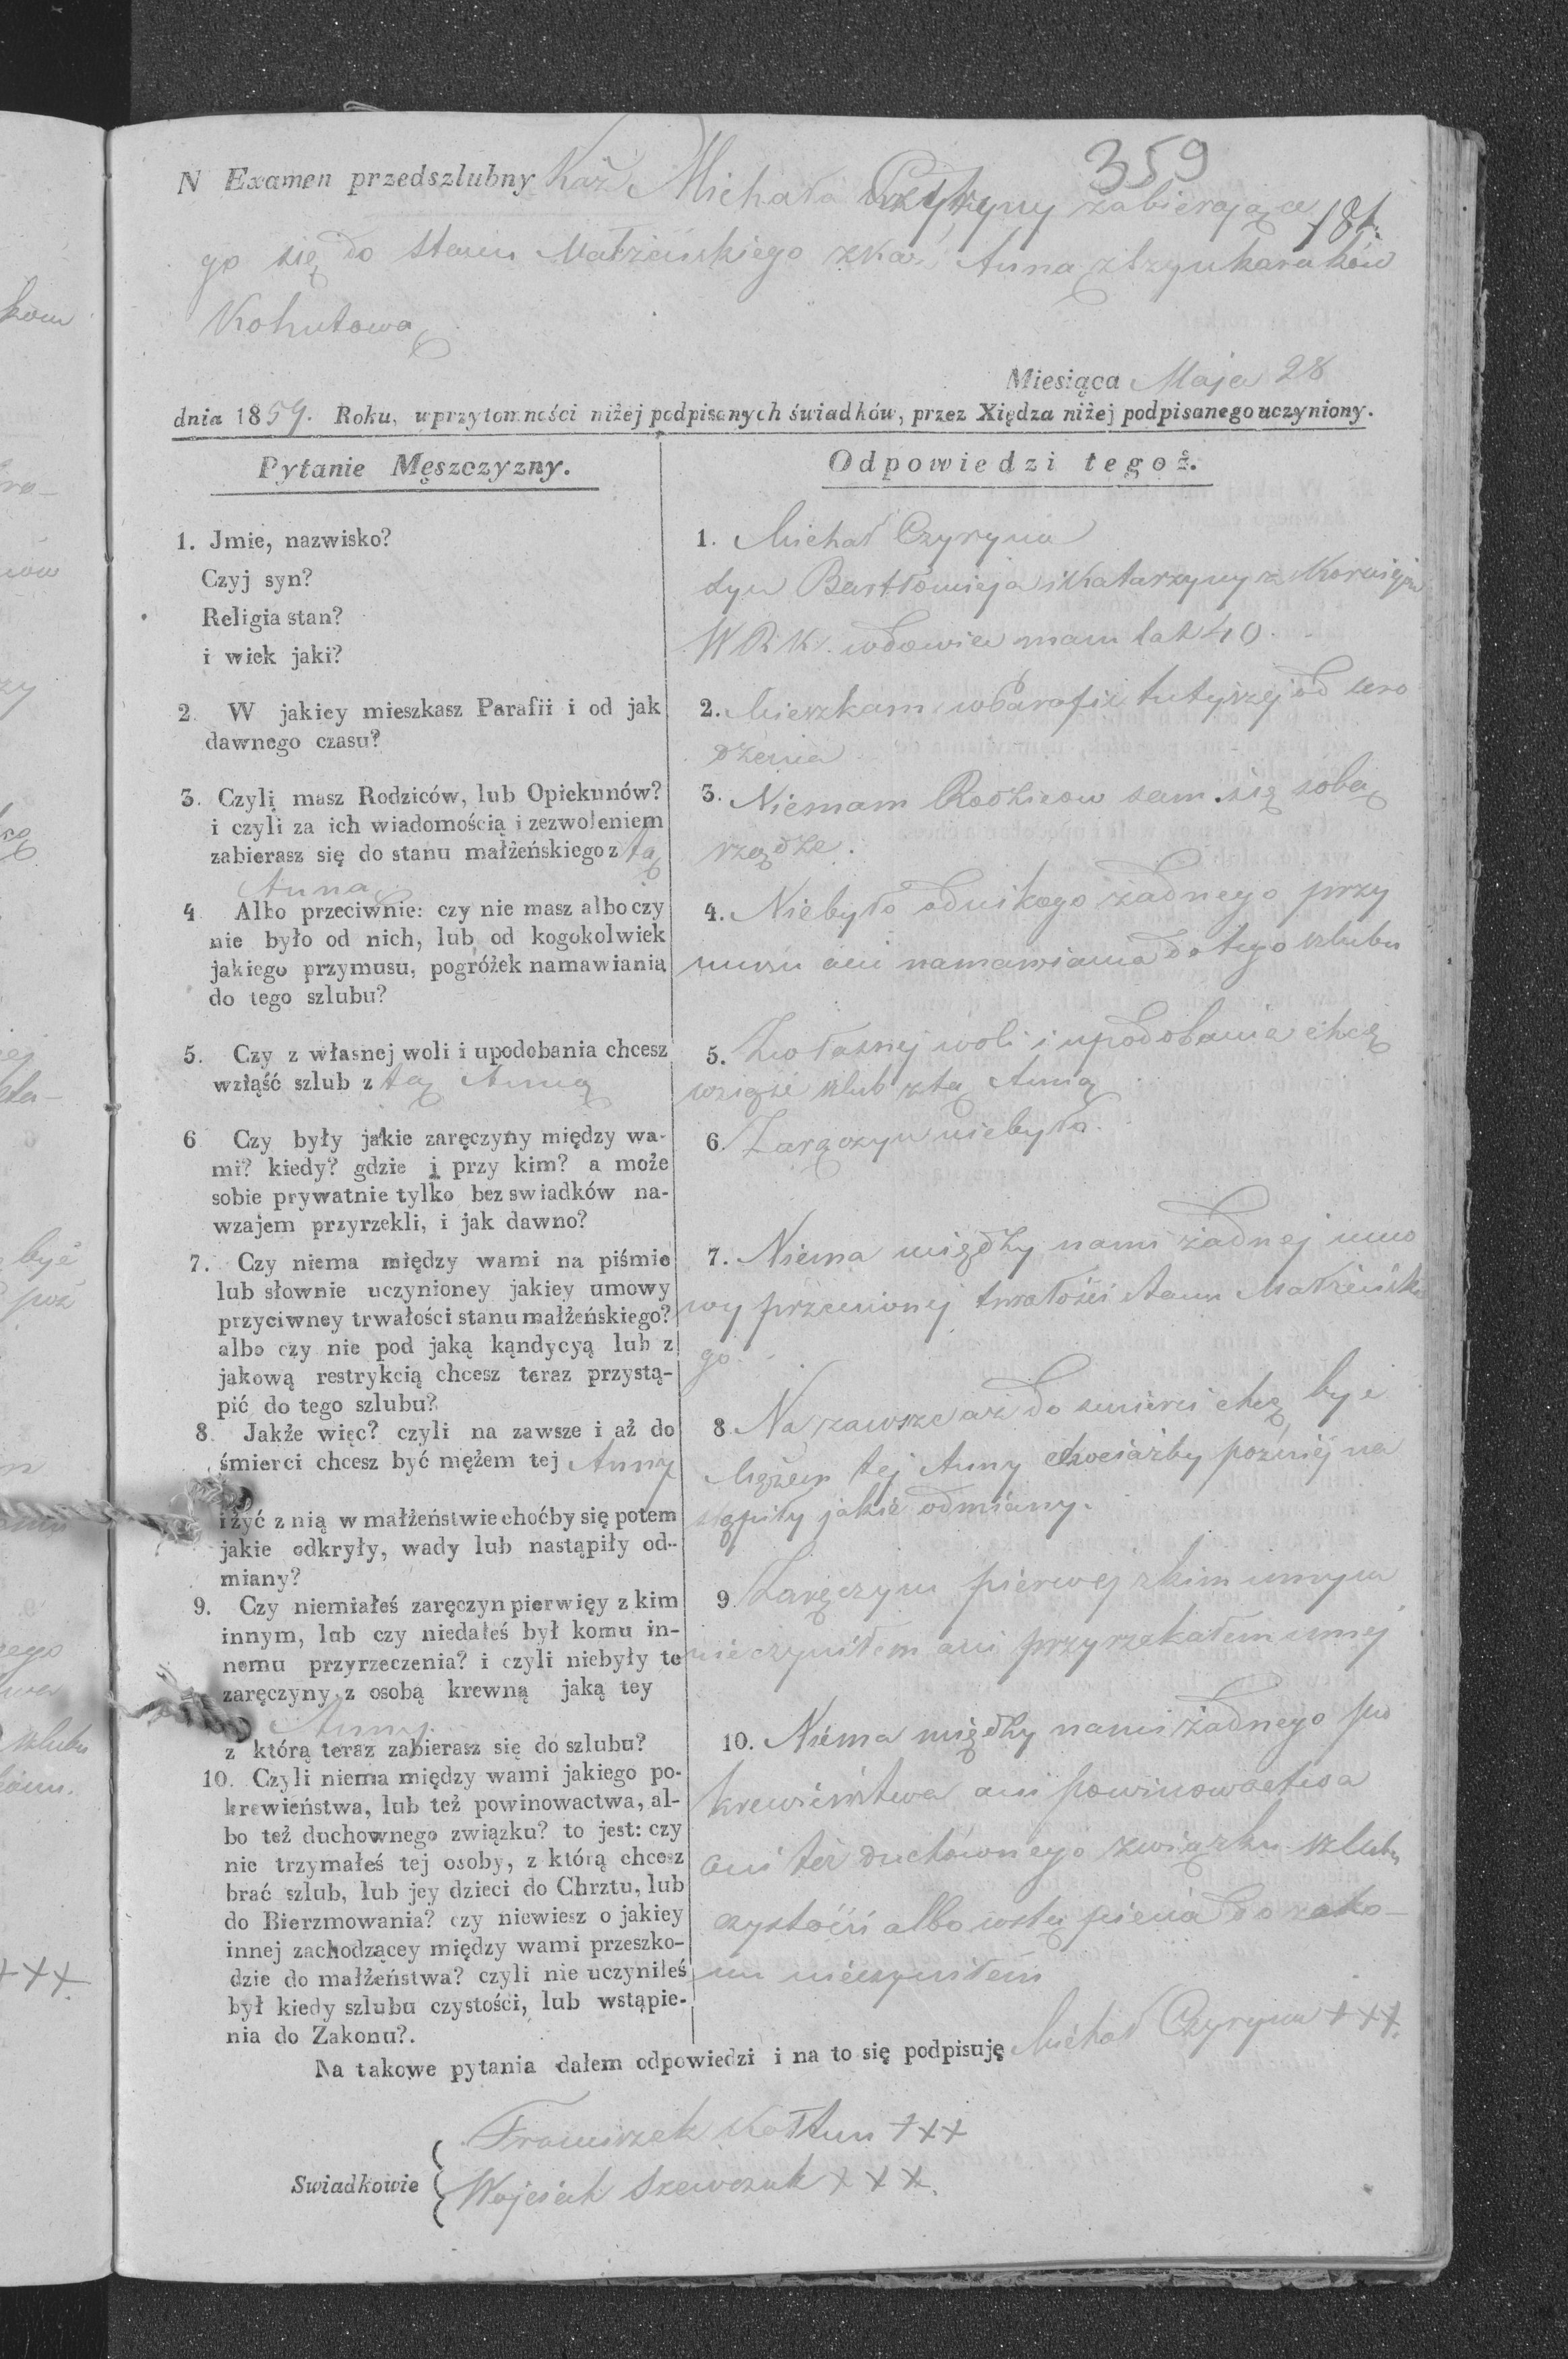 359
181.
N Examen przedszlubny Michała Czyryny zabierające
go się do stanu Małżeńskiego z Anną
Kohutową
Miesiąca Maja 28
dnia 1859. Roku, w przytomności niżej podpisanych świadków, przez Xiędza niżej podpisanego uczyniony.
Pytanie Męszczyzny.
1. Jmie, nazwisko?
Czyj syn?
Religia stan?
i wiek jaki?
2. W jakiey mieszkasz Parafii i od jak
dawnego czasu?
3. Czyli masz Rodziców, lub Opiekunów?
i czyli za ich wiadomością i zezwoleniem
zabierasz się do stanu małżeńskiego z tą
Anną
4 Albo przeciwnie: czy nie masz albo czy
nie było od nich, lub od kogokolwiek
jakiego przymusu, pogróżek namawiania
do tego szlubu?
5. Czy z własnej woli i upodobania chcesz
wziąść szlub z tą Anną
6 Czy były jakie zaręczyny między wa-
mi? kiedy? gdzie i przy kim? a może
sobie prywatnie tylko bez swiadków na-
wzajem przyrzekli, i jak dawno?
7. Czy niema między wami na piśmie
lub słownie uczynioney jakiey umowy
przyciwney trwałości stanu małżeńskiego?
albo czy nie pod jaką kąndycyą lub z
jakową restrykcią chcesz teraz przystą-
pić do tego szlubu?
8. Jakże więc? czyli na zawsze i aż do
śmierci chcesz być mężem tej Anny
i żyć z nią w małżeństwie choćby się potem
jakie odkryły, wady lub nastąpiły od-
miany?
9. Czy niemiałeś zaręczyn pierwięy z kim
innym, lub czy niedałeś był komu in-
nemu przyrzeczenia? i czyli niebyły te
zaręczyny z osobą krewną jaką tey
Anny
z którą teraz zabierasz się do szlubu?
10. Czyli niema między wami jakiego po-
krewieństwa, lub też powinowactwa, al-
bo też duchownego związku? to jest: czy
nie trzymałeś tej osoby, z którą chcesz
brać szlub, lub jey dzieci do Chrztu, lub
do Bierzmowania? czy niewiesz o jakiey
innej zachodzącey między wami przeszko-
dzie do małżeństwa? czyli nie uczyniłeś
był kiedy szlubu czystości, lub wstąpie-
nia do Zakonu?.
Odpowiedzi tegoż.
1. Michał Czyryna
syn Bartłomieja i Katarzyny z
W R K. wdowiec mam lat 40.
2. Mieszkam w Parafii tutejszej od uro
dzenia
3. Niemam Rodziców sam się sobą
rządze.
4. Niebyło od nikogo żadnego przy
musu ani namawiania do tego szlubu
5. Z własnej woli i upodobania chcę
wziąść szlub z tą Anną
6. Zaręczyn niebyło.
7. Niema między nami żadnej umo
wy przeciwnej trwałości stanu Małżeńskie
go
8. Na zawsze aż do śmierci chcę być
Mężem tej Anny chociażby pózniej na
stąpiły jakie odmiany.
9. Zaręczyn pierwej z kim innym
nie czyniłem ani przyrzekałem innej
10. Niema między nami żadnego po
krewieństwa ani powinowactwa
ani też duchownego związku szlubu
czystości albo wstąpienia do zako-
nu nieczyniłem
Na takowe pytania dałem odpowiedzi i na to się podpisuję Michał Czyryna +++.
Swiadkowie
Franciszek Kołtun +++
Wojciech Szewczuk +++.